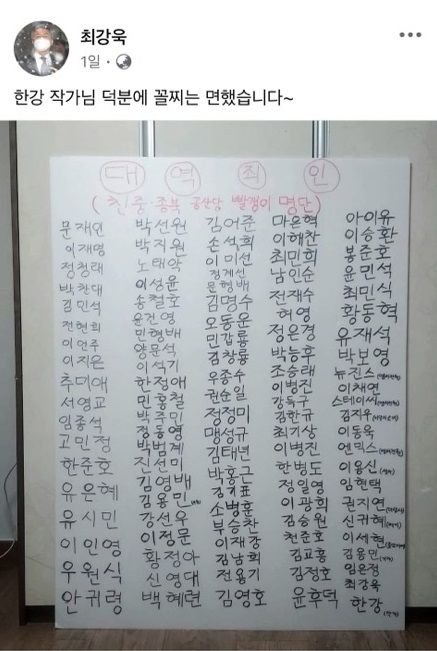 최강욱
1일
한강 작가님 덕분에 꼴찌는 면했습니다~
대 역 죄 인
(친중·종북 공산당 빨갱이 명단)
문재인
이재명
정청래
박찬대
김민석
전현희
이언주
이지은
추미애
서영교
임종석
고민정
한준호
유은혜
유시민
이인영
우원식
안귀령
박선원
박지원
노태악
이성윤
송철호
윤건영
민형배
양문석
이석기
한정애
민홍철
박주민
정동영
박범계
진선미
김영배
김용민
강선우
이정문
황정아
신영대
백혜련
김어준
손석희
이미선
정계선
문형배
김명수
오동운
민갑룡
김창룡
우종수
권순일
정정미
맹성규
김태년
박홍근
김기표
소병훈
부승찬
이재강
김남희
전용기
김영호
마은혁
이해찬
최민희
남인순
전재수
허영
정은경
박능후
조승래
이병진
강득구
김한규
최기상
이병진
한병도
정일영
이광희
김승원
천준호
김교흥
김정호
윤후덕
아이유
이승환
봉준호
윤민석
최민식
황동혁
유재석
박보영
뉴진스
이채연
스테이씨
김지우
이동욱
엔믹스
이용신
임현택
권지연
신귀혜
이세현
김용민
임은정
최강욱
한강(작가)